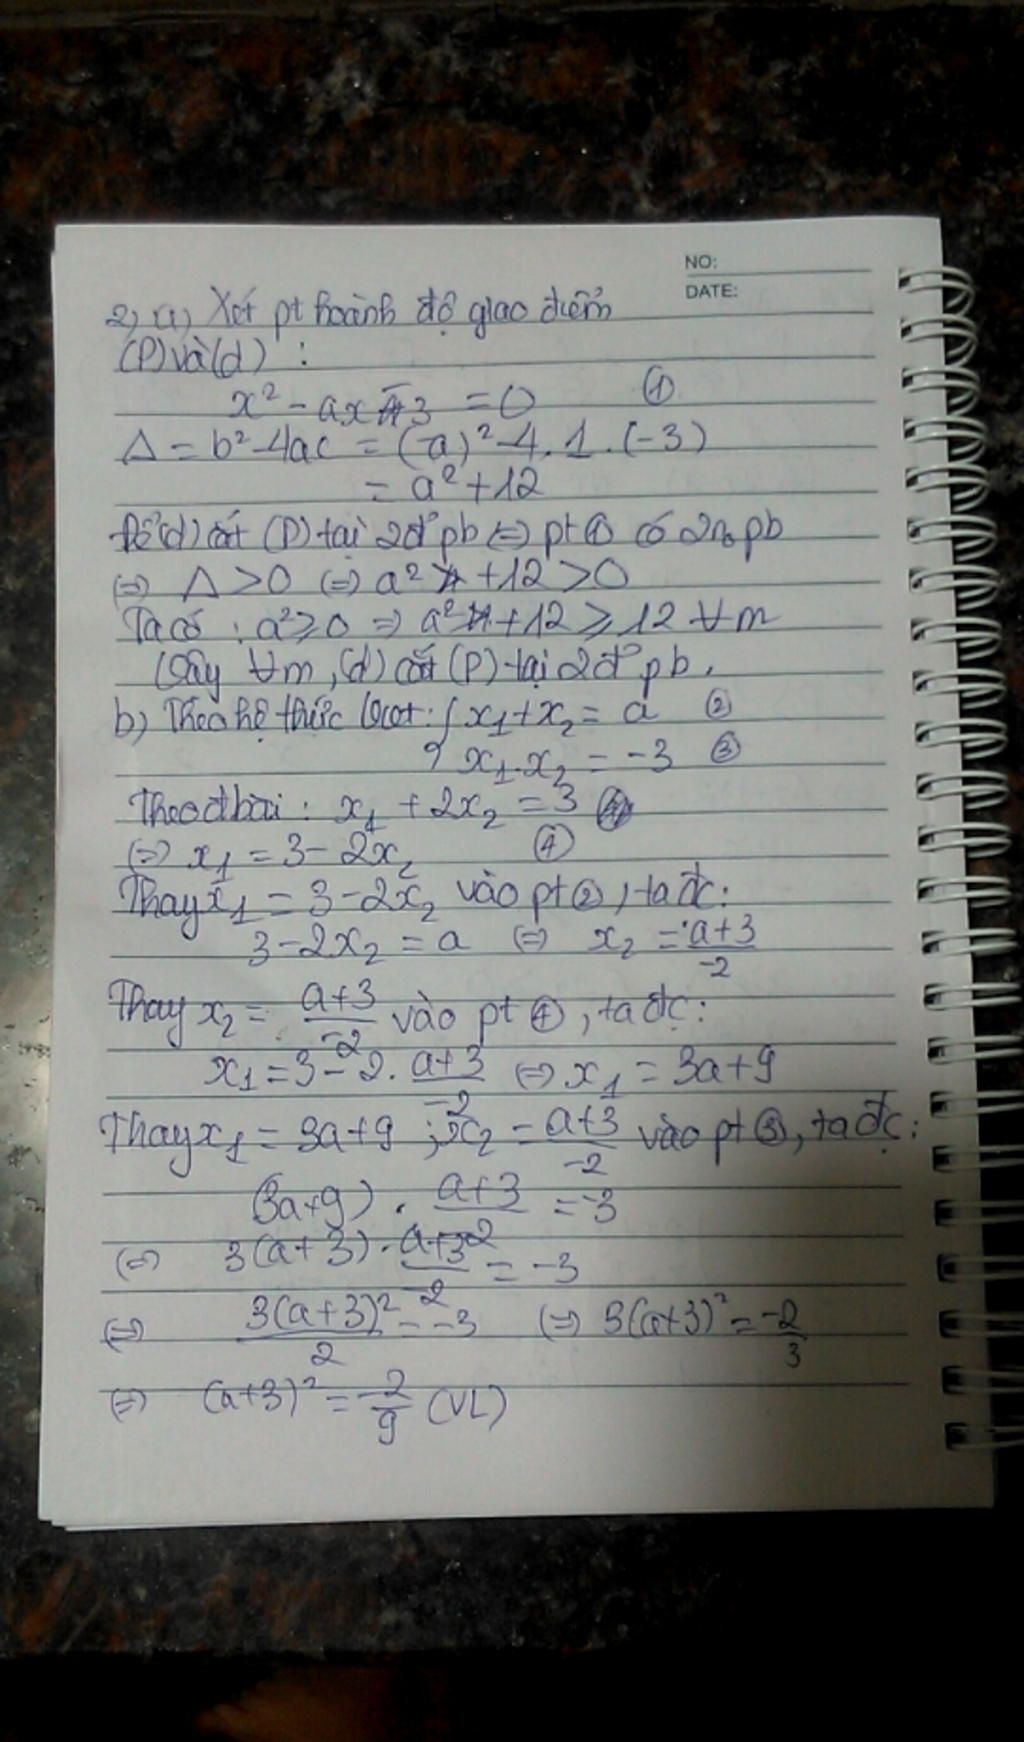 NO:
DATE:
2) a) Xét pt hoành độ giao điểm
(P) và (d) :
x² - ax - 3 = 0 ①
Δ = b² - 4ac = (-a)² - 4 . 1 . (-3)
= a² + 12
Để (d) cắt (P) tại 2đ' pb ⇔ pt ① có 2no pb
⇔ Δ > 0 ⇔ a² + 12 > 0
Ta có : a² ≥ 0 ⇒ a² + 12 ≥ 12 ∀m
Vậy ∀m, (d) cắt (P) tại 2đ' pb.
b) Theo hệ thức Viet : { x₁ + x₂ = a ②
x₁ . x₂ = -3 ③
Theo đbài : x₁ + 2x₂ = 3
⇔ x₁ = 3 - 2x₂ ④
Thay x₁ = 3 - 2x₂ vào pt ②, ta đc:
3 - 2x₂ = a ⇔ x₂ = a+3/-2
Thay x₂ = a+3/-2 vào pt ④, ta đc:
x₁ = 3 - 2. a+3/-2 ⇔ x₁ = 3a + 9
Thay x₁ = 3a + 9 ; x₂ = a+3/-2 vào pt ③, ta đc:
(3a+9) . a+3/-2 = -3
⇔ 3(a+3) . a+3/-2 = -3
⇔ 3(a+3)²/2 = -3 ⇔ 3(a+3)² = -2/3
⇔ (a+3)² = -2/9 (VL)